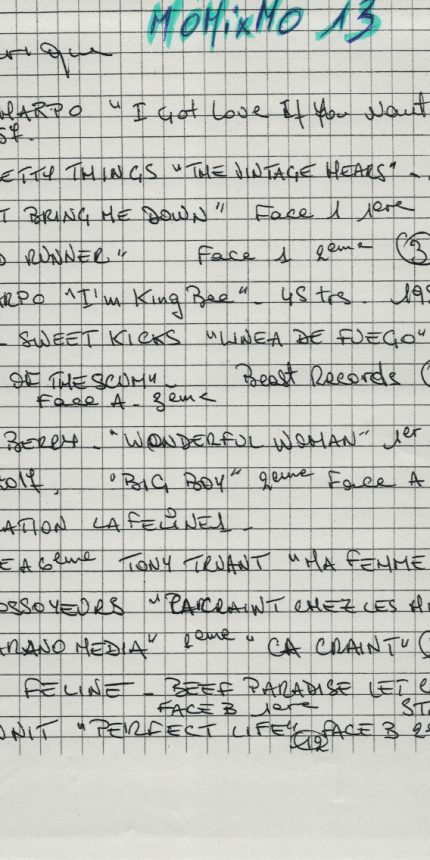 MOMixMO 13
rique
HARPO "I Got Love If You Want
57.
ETTY THINGS "THE VINTAGE YEARS" -
T BRING ME DOWN" Face 1 1ere
D RUNNER" Face 1 2eme (3
ARPO "I'm King Bee" - 45 trs. 195
- SWEET KICKS "LINEA DE FUEGO"
OF THE SCUM" - Beast Records (
Face A - 3eme
BERRY - "WONDERFUL WOMAN" 1er
2017, "BIG BOY" 2eme Face A
ATION LA FELINE 1 -
E A 6eme TONY TRUANT "MA FEMME
OSSOYEURS "CA CRAINT CHEZ LES
ARANO MEDIA" 2eme "CA CRAINT" (
FELINE - BEEF PARADISE LET
FACE B 1ere ST
UNIT "PERFECT LIFE" (12) FACE B 2e